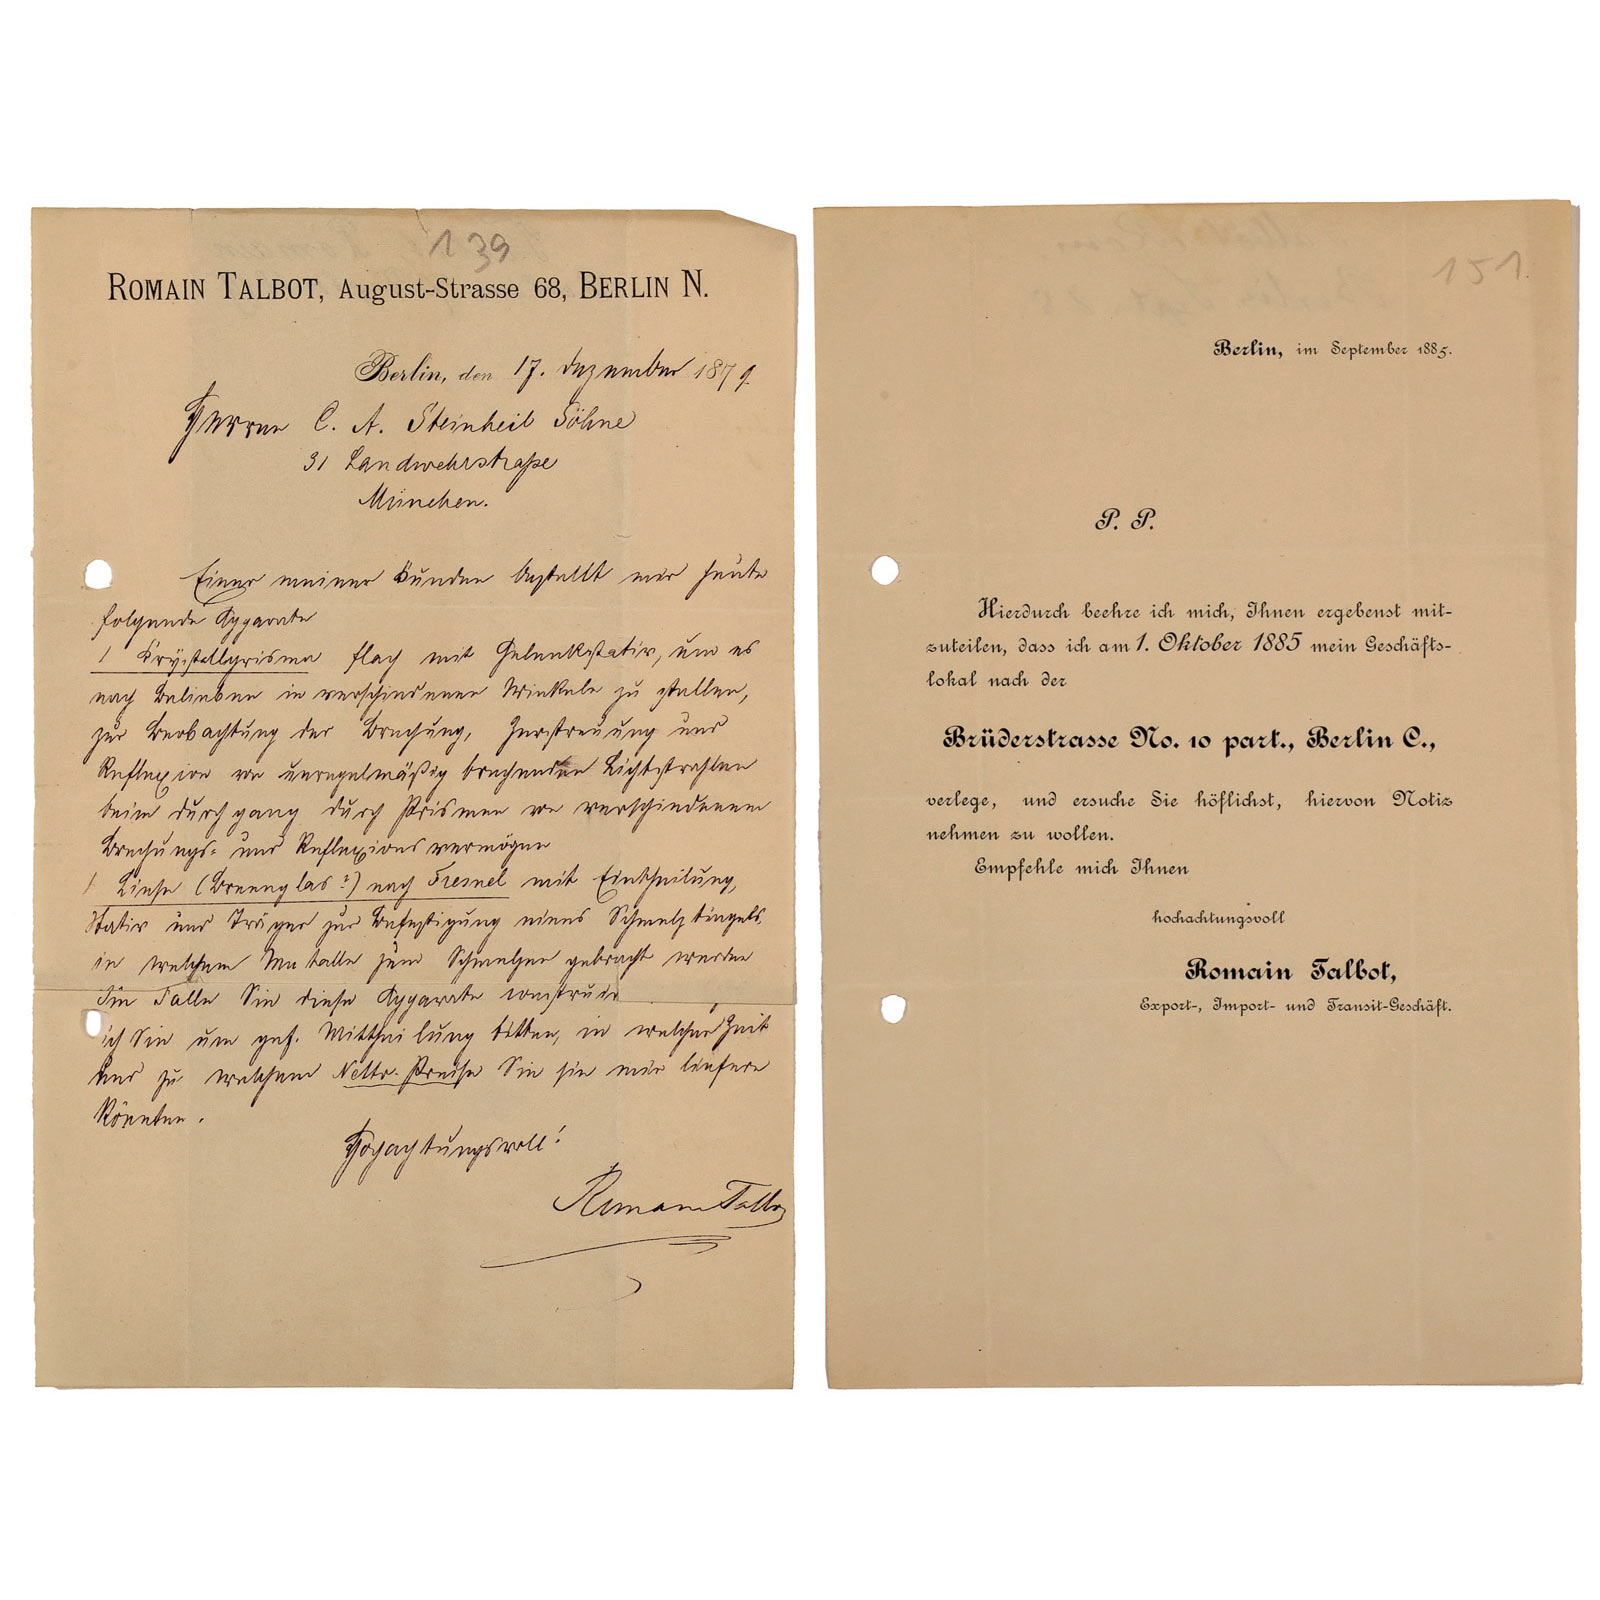 139
ROMAIN TALBOT, August-Strasse 68, BERLIN N.
Berlin, den 17. Dezember 1879.
Herren C. A. Steinheil Söhne
31 Landwehrstraße
München.
Einer meiner Kunden bestellt mir heute
folgende Apparate
1 Krystallprisma flach mit Gelenkstativ, um es
nach Belieben in verschiedene Winkel zu stellen,
zur Beobachtung der Brechung, Zerstreuung und
Reflexion von unregelmäßig brechenden Lichtstrahlen
beim Durchgang durch Prismen von verschiedenem
Brechungs- und Reflexionsvermögen
1 Linse (Brennglas?) nach Fresnel mit Eintheilung,
Stativ und Träger zur Befestigung eines Schmelztiegels
in welchem Metalle zum Schmelzen gebracht werden
Im Falle Sie diese Apparate
ich Sie um gef. Mittheilung bitten, in welcher Zeit
und zu welchem Netto-Preise Sie sie mir liefern
könnten.
Hochachtungsvoll!
Romain Talbot
151.
Berlin, im September 1885.
P. P.
Hierdurch beehre ich mich, Ihnen ergebenst mit-
zuteilen, dass ich am 1. Oktober 1885 mein Geschäfts-
lokal nach der
Brüderstrasse No. 10 part., Berlin C.,
verlege, und ersuche Sie höflichst, hiervon Notiz
nehmen zu wollen.
Empfehle mich Ihnen
hochachtungsvoll
Romain Talbot,
Export-, Import- und Transit-Geschäft.